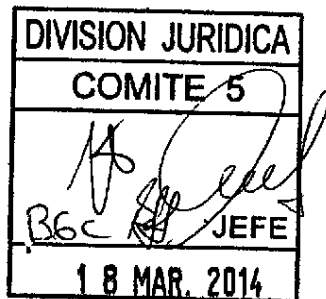 DIVISION JURIDICA
COMITE 5
BGC JEFE
18 MAR. 2014